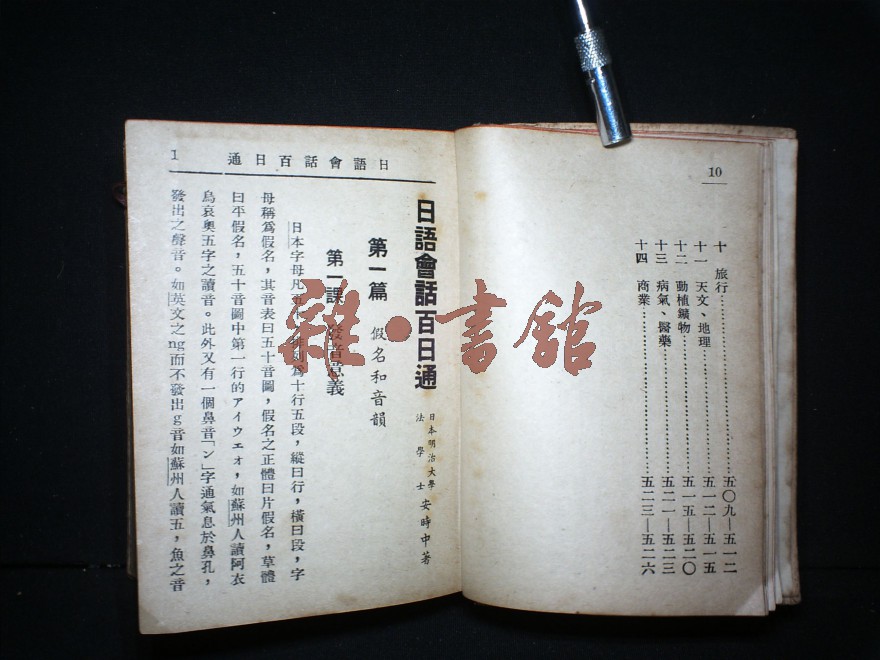 10
十 旅行……五〇九—五一二
十一 天文、地理……五一二—五一五
十二 動植鑛物……五一五—五二〇
十三 病氣、醫藥……五二一—五二三
十四 商業……五二三—五二六
日語會話百日通
1
日語會話百日通
日本明治大學
法學士
安時中著
第一篇 假名和音韻
第一課 發音意義
日本字母凡五十,排列爲十行五段,縱曰行,橫曰段,字
母稱爲假名,其音表曰五十音圖,假名之正體曰片假名,草體
曰平假名,五十音圖中第一行的アイウェオ,如蘇州人讀阿衣
烏哀奧五字之讀音。此外又有一個鼻音「ン」字通氣息於鼻孔,
發出之聲音。如英文之ng而不發出g音如蘇州人讀五,魚之音
雜·書館